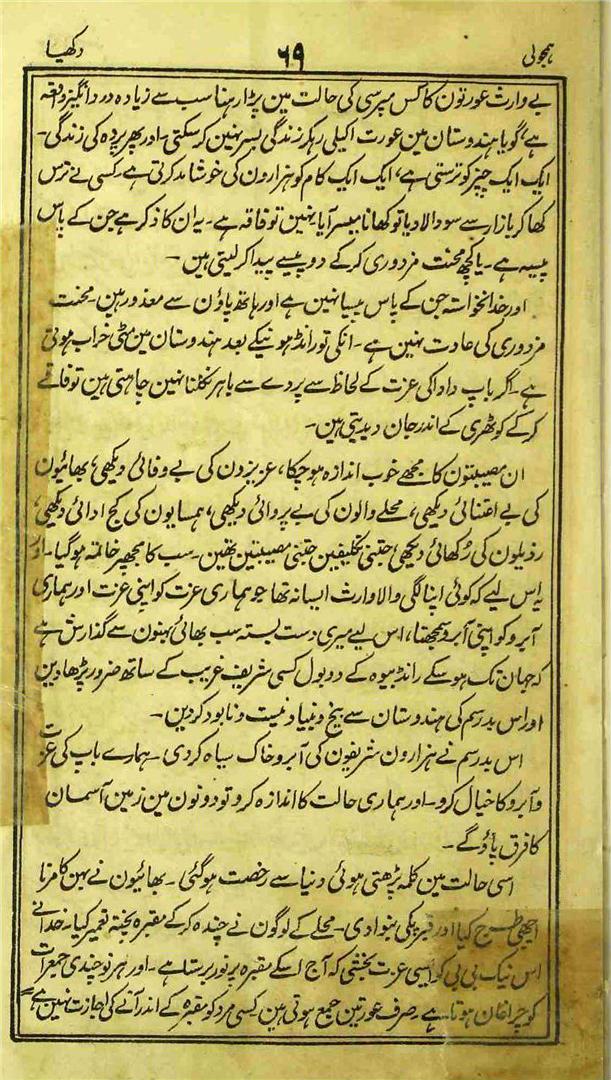 ہمجولی ۶۹ دکھیا
بے وارث عورتون کا کس مپرسی کی حالت مین پڑا رہنا سب سے زیادہ دردانگیز واقعہ
ہے، گویا ہندوستان مین عورت اکیلی رہکر زندگی بسر نہین کرسکتی۔ اور پھر پردہ کی زندگی۔
ایک ایک چیز کو ترستی ہے، ایک ایک کام کو ہزارون کی خوشامد کرتی ہے۔ کسی نے ترس
کھا کر بازار سے سودا لادیا تو کھانا میسر آیا نہین تو فاقہ ہے۔ یہ ان کا ذکر ہے جن کے پاس
پیسہ ہے۔ یا کچھ محنت مزدوری کرکے دو پیسے پیدا کرلیتی ہین۔
اور خدانخواستہ جن کے پاس پیسا نہین ہے اور ہاتھ پاؤن سے معذور ہین۔ محنت
مزدوری کی عادت نہین ہے۔ انکی تو رانڈ ہونیکے بعد ہندوستان مین مٹی خراب ہوتی
ہے۔ اگر باپ دادا کی عزت کے لحاظ سے پردے سے باہر نکلنا نہین چاہتی ہین تو فاقے
کرکے کوٹھری کے اندر جان دیدیتی ہین۔
ان مصیبتون کا مجھے خوب اندازہ ہوچکا، عزیزون کی بے وفائی دیکھی، بھائیون
کی بے اعتنائی دیکھی، محلے والون کی بے پروائی دیکھی، ہمسایون کی کج ادائی دیکھی،
رذیلون کی رُکھائی دیکھی، جتنی تکلیفین جتنی مصیبتین تھین۔ سب کا مجھپر خاتمہ ہوگیا۔ اور
یہ اس لیے کہ کوئی اپنا لگی والا وارث ایسا نہ تھا جو ہماری عزت کو اپنی عزت اور ہماری
آبرو کو اپنی آبرو سمجھتا، اس لیے میری دست بستہ سب بھائی بہنون سے گذارش ہے
کہ جہان تک ہوسکے رانڈ بیوہ کے دو بول کسی شریف غریب کے ساتھ ضرور پڑھا دین
اور اس بد رسم کی ہندوستان سے بیخ و بنیاد نیست و نابود کردین۔
اس بد رسم نے ہزارون شریفون کی آبرو خاک سیاہ کردی۔ ہمارے باپ کی عزت
و آبرو کا خیال کرو۔ اور ہماری حالت کا اندازہ کرو تو دونون مین زمین آسمان
کا فرق پاؤ گے۔
اسی حالت مین کلمہ پڑھتی ہوئی دنیا سے رخصت ہوگئی۔ بھائیون نے بہن کا مرنا
اچھی طرح کیا اور قبر پکی بنوا دی۔ محلے کے لوگون نے چندہ کرکے مقبرہ پختہ تعمیر کیا۔ خدا نے
اس نیک بی بی کو ایسی عزت بخشی کہ آج اسکے مقبرہ پر نور برستا ہے۔ اور ہر نوچندی جمعرات
کو چراغان ہوتا ہے۔ صرف عورتین جمع ہوتی ہین کسی مرد کو مقبرہ کے اندر آنے کی اجازت نہین ہے